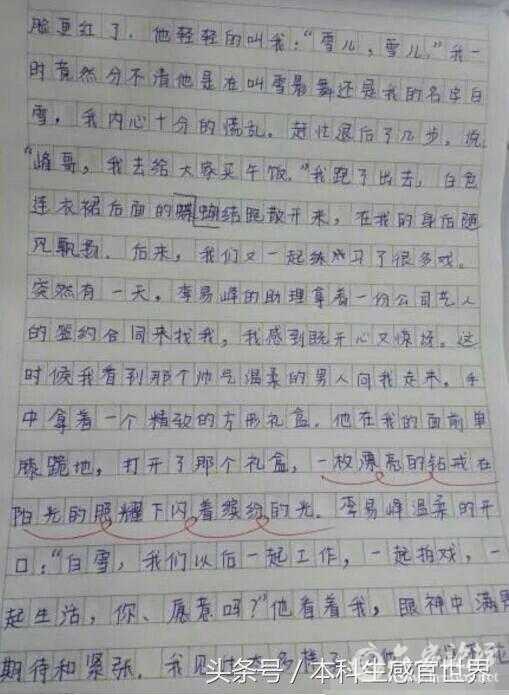 脸更红了，他轻轻的叫我："雪儿，雪儿。"我一
时竟然分不清他是在叫雪最舞还是我的名字白
雪，我内心十分的慌乱。赶忙退后了几步。说
"峰哥，我去给大家买午饭。"我跑了出去，白色
连衣裙后面的蝴蝶结跑散开来，在我的身后随
风飘动。后来，我们又一起练习了很多戏。
突然有一天，李易峰的助理拿着一份公司艺人
的签约合同来找我，我感到既开心又惊讶。这
时候我看到那个帅气温柔的男人向我走来，手
中拿着一个精致的方形礼盒。他在我的面前单
膝跪地，打开了那个礼盒，一枚漂亮的钻戒在
阳光的照耀下闪着缤纷的光。李易峰温柔的开
口："白雪，我们以后一起工作，一起拍戏，一
起生活，你、愿意吗？"他看着我，眼神中满是
期待和紧张。我
头条号／本科生感官世界